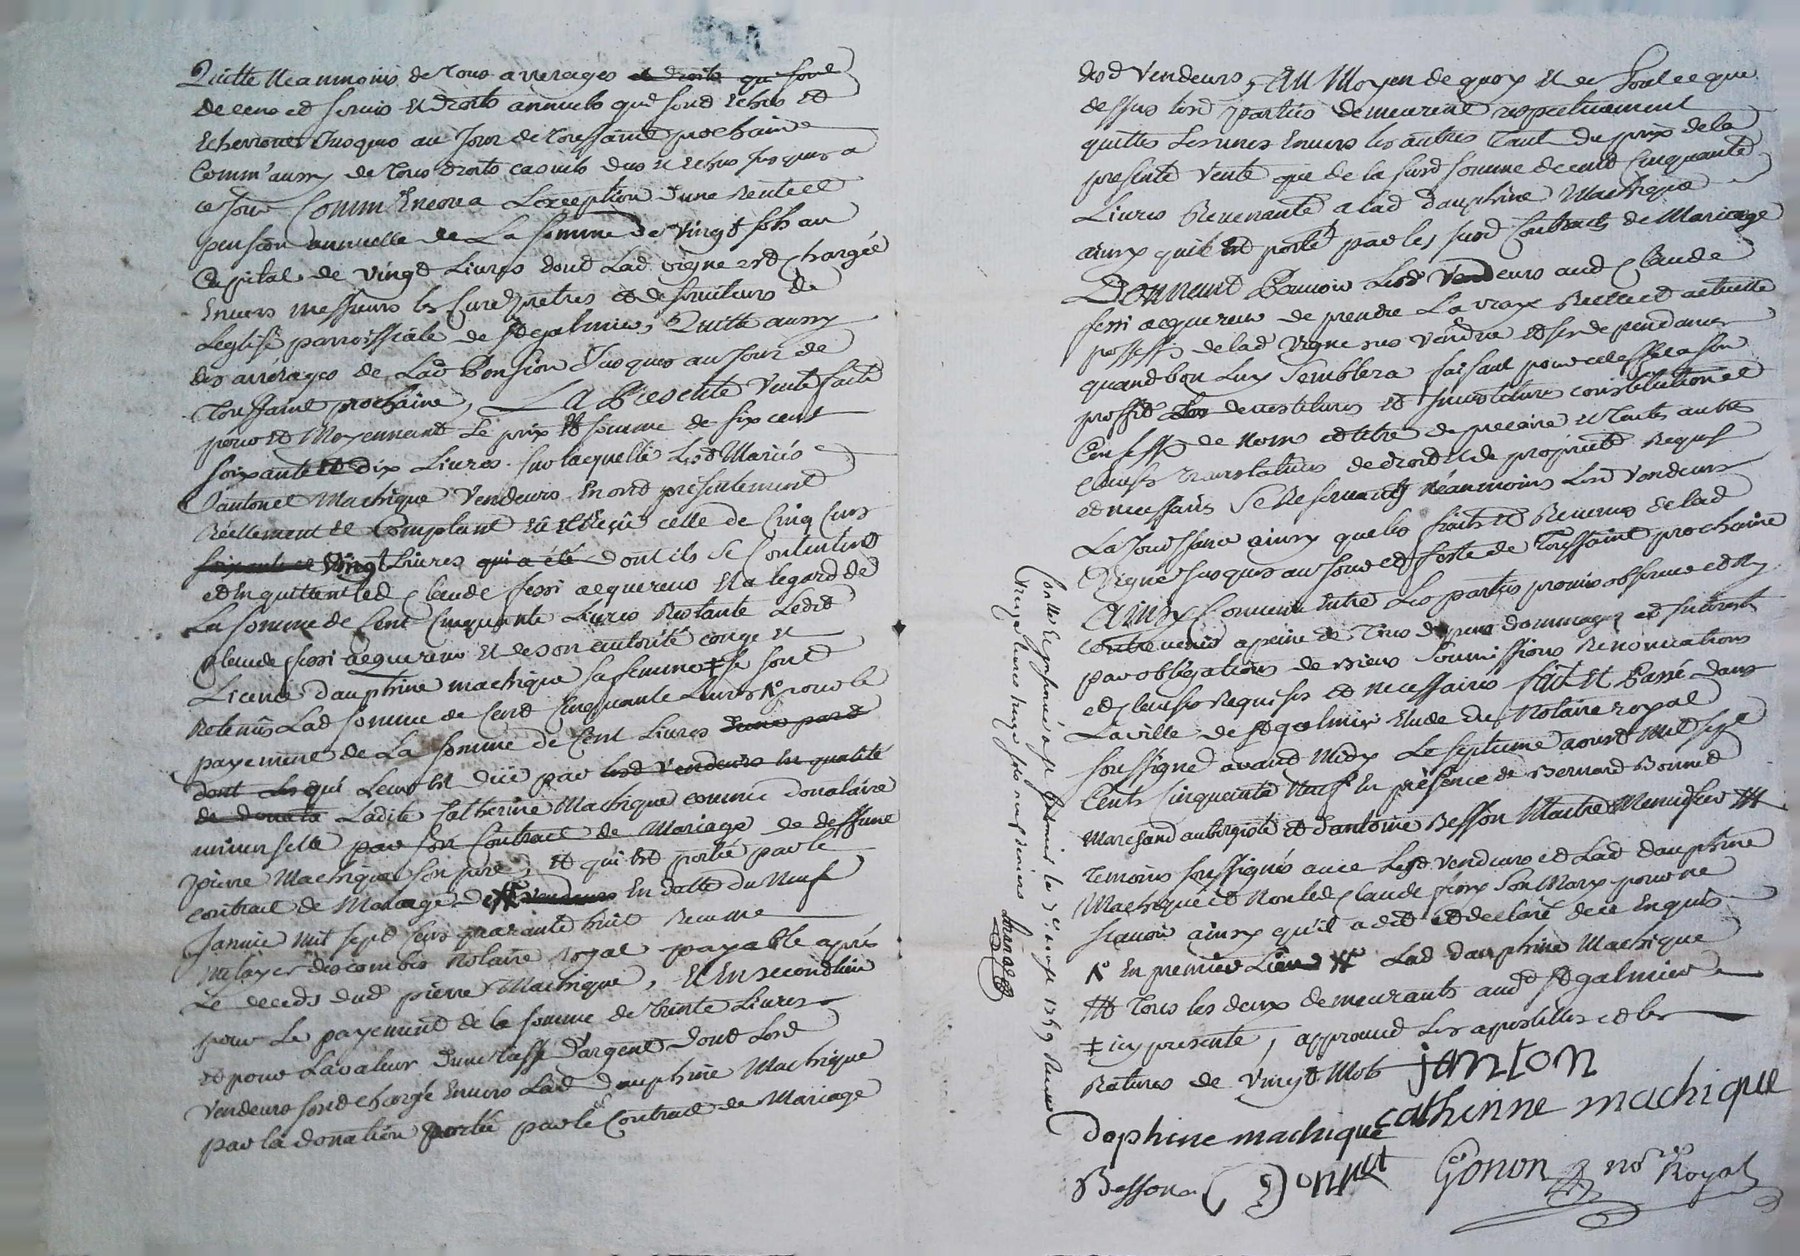 Quitte Neanmoins de tous arrerages et droits qui sont
de cens et servis et droits annuels qui sont echus et
echerront Jusques au Jour de toussaint prochaine
Comm'aussy de tous droits casuels dus et echus Jusques a
ce Jour Comm Encore a L'exception d'une Rente et
pension annuelle de La somme de vingt sols au
Capital de vingt Livres dont Lad vigne est chargée
Envers messieurs les Curé prêtres et deserviteurs de
Leglise parroissiale de St galmier, Quitte aussy
des arrérages de Lad Pension Jusques au Jour de
Toussaint prochaine, La Presente Vente faite
pour et Moyennant Le prix et somme de six cent
soixante et dix Livres sur laquelle Lesd Mariés
Janton et Machique Vendeurs En ont présentement
Réellement et Comptant eü et Reçü celle de Cinq Cens
soixante et vingt Livres qui a été dont ils se Contentent
et En quittent led Claude fessi acquereur Et a legard de
La somme de Cent Cinquante Livres Restante Ledit
Claude fessi acquereur et de son autorité congé et
Licence dauphine machique sa femme ‡ se sont
Retenüs Lad somme de Cent Cinquante Livres pour le
payement de La somme de Cent Livres d'une part
dont Les qui Leur est düe par lesd vendeurs En qualité
de donata Ladite Catherine Machique comme donataire
universelle par son Contract de Mariage de deffunt
pierre Machique son pere, et qui est portée par le
contract de Mariage vendeurs En datte du Neuf
Janvier mil sept Cens quarante huit Recu me
notaire Royal payable après
Le deceds dud pierre Machique, Et En second lieu
pour Le payement de la somme de trente Livres
et pour La valeur d'une tasse d'argent dont Lesd
vendeurs sont chargé Envers Lad dauphine Machique
par la donation portée par le Contract de Mariage
desd Vendeurs, Au Moyen de quoy et de tout ce que
dessus Lesd parties demeurent respectivement
quittes Les unes Envers les autres tant du prix de la
presente Vente que de la susd somme de cent Cinquante
Livres Revenante a lad dauphine Machique
ainsy qu'il est porté par les susd Contracts de Mariage
Donnent Pouvoir Lesd Vendeurs aud Claude
fessi acquereur de prendre La vraye Réelle et actuelle
possess de lad vigne sus vendue et ses dependances
quand bon Luy semblera faisant pour cet effet a son
proffit Les devestitures et Investiture constitution et
Confess de Noms et titre de precaire et toutes autres
clauses translatives de droit et de propriété Requis
et necessaires Se Reservants Néanmoins Lesd Vendeurs
La Jouissance ainsy que les fruits et Revenus de lad
Vigne Jusques au Jour et feste de Toussaint prochaine
Ainsy Convenu Entre Les parties promis observer et Ny
contrevenir a peine de tous depens dommages et Interests
par obligations de Biens Soumissions Renonciations
et clauses Requises et necessaires fait et Passé dans
La ville de St galmier Etude du Notaire royal
soussigné avant Midy Le septieme aoust Mil sept
Cents Cinquante Neuf En présence de Bernard Bonnet
Marchand aubergiste et d'antoine Besson Maitre Menuisier
Temoins soussignés avec Lesd vendeurs et Lad dauphine
Machique et Non led Claude fessy son Mary pour ne
scavoir ainsy qu'il a dit et declaré de ce Enquis
En premier Lieu Lad dauphine Machique
Tous les deux demeurants aud St galmier
‡ icy presente, approuvé Les apostilles et les
Ratures de vingt Mots
janton
daphine machique
catherinne machique
Besson
Bonnet
Gonon nore Royal